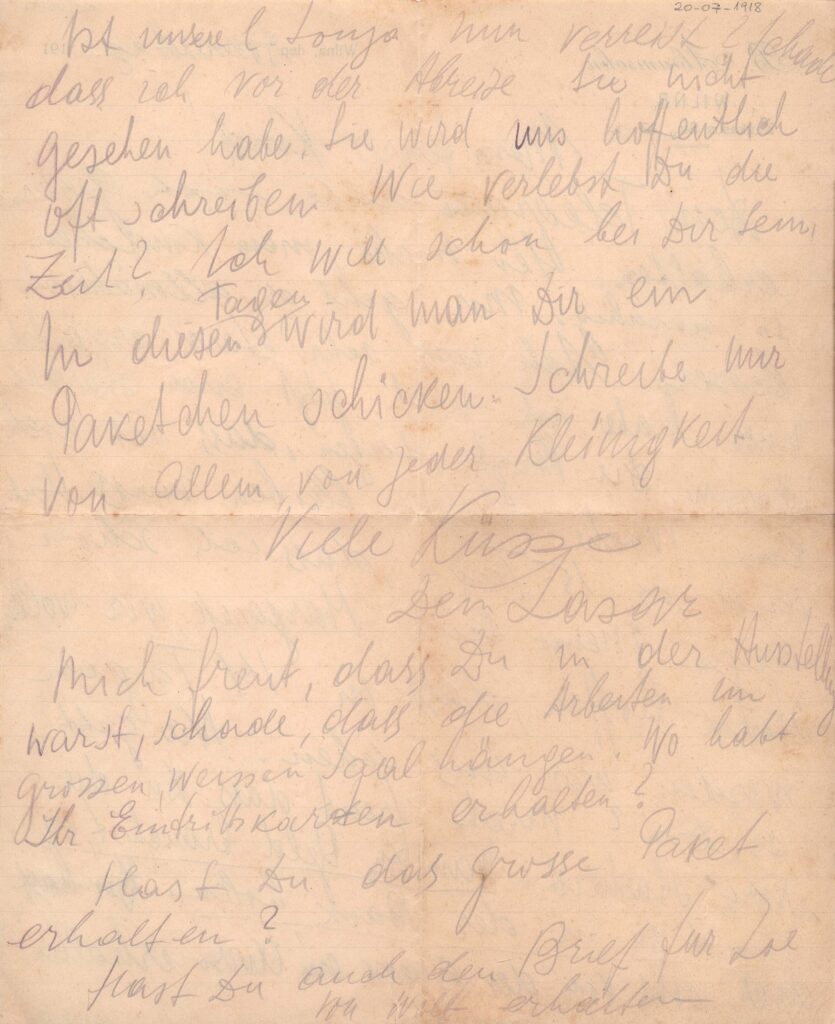 20-07-1918
Ist unsere l Sonja nun verreist? Schade
dass ich vor der Abreise Sie nicht
gesehen habe. Sie wird uns hoffentlich
oft schreiben. Wie verlebst Du die
Zeit? Ich will schon bei Dir sein,
In diesen Tagen wird man Dir ein
Paketchen schicken. Schreibe mir
von Allem, von jeder Kleinigkeit.
Viele Küsse
Dein Lasar
Mich freut, dass Du in der Ausstellg
warst, schade, dass die Arbeiten im
grossen, weissen Saal hängen. Wo habt
Ihr Eintrittskarten erhalten?
Hast Du das grosse Paket
erhalten?
Hast Du auch den Brief für Zoe
von erhalten